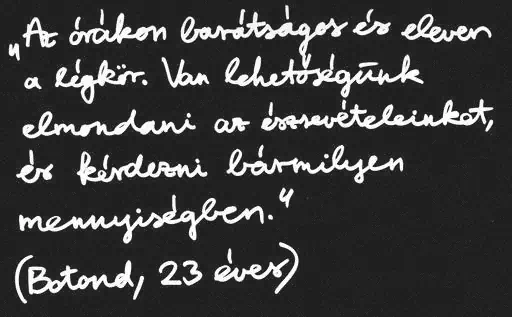 „Az órákon barátságos és eleven
a légkör. Van lehetőségünk
elmondani az észrevételeinket,
és kérdezni bármilyen
mennyiségben."
(Botond, 23 éves)